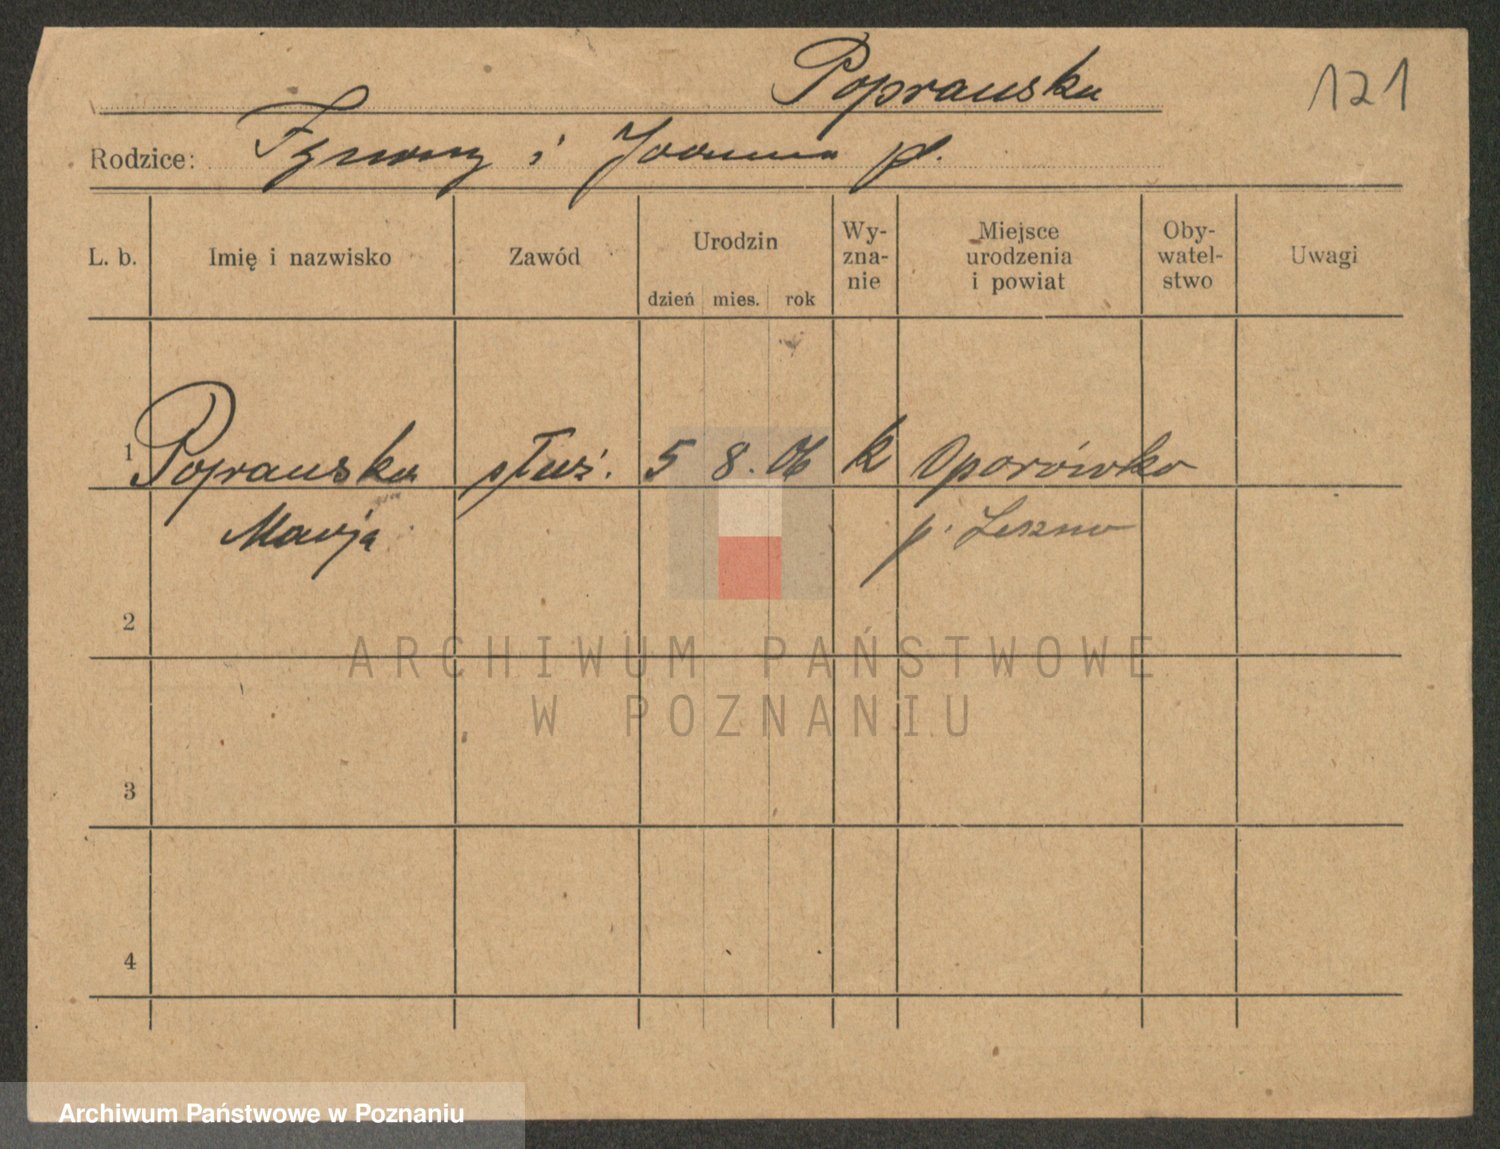 Poprawska
121
Rodzice: i Joanna p.
L. b. Imię i nazwisko Zawód Urodzin dzień mies. rok Wy-zna-nie Miejsce urodzenia i powiat Oby-watel-stwo Uwagi
1 Poprawska służ. 5 8. 06 k Oporówko
Marja p. Leszno
2
3
4
ARCHIWUM PAŃSTWOWE
W POZNANIU
Archiwum Państwowe w Poznaniu